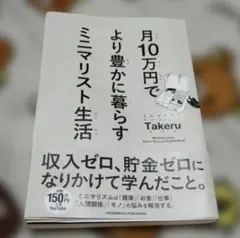 月10万円で
より豊かに暮らす
ミニマリスト生活
Takeru
収入ゼロ、貯金ゼロに
なりかけて学んだこと。
150万
YouTube
ミニマリズムは「健康」「お金」「仕事」
「人間関係」「モノ」の悩みを解決する。